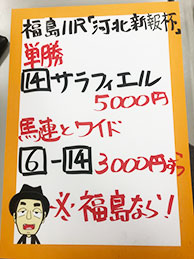 福島11R「河北新報杯」
単勝
14 サラフィエル
5000円
馬連とワイド
6-14 3000円ずつ
※福島なら!